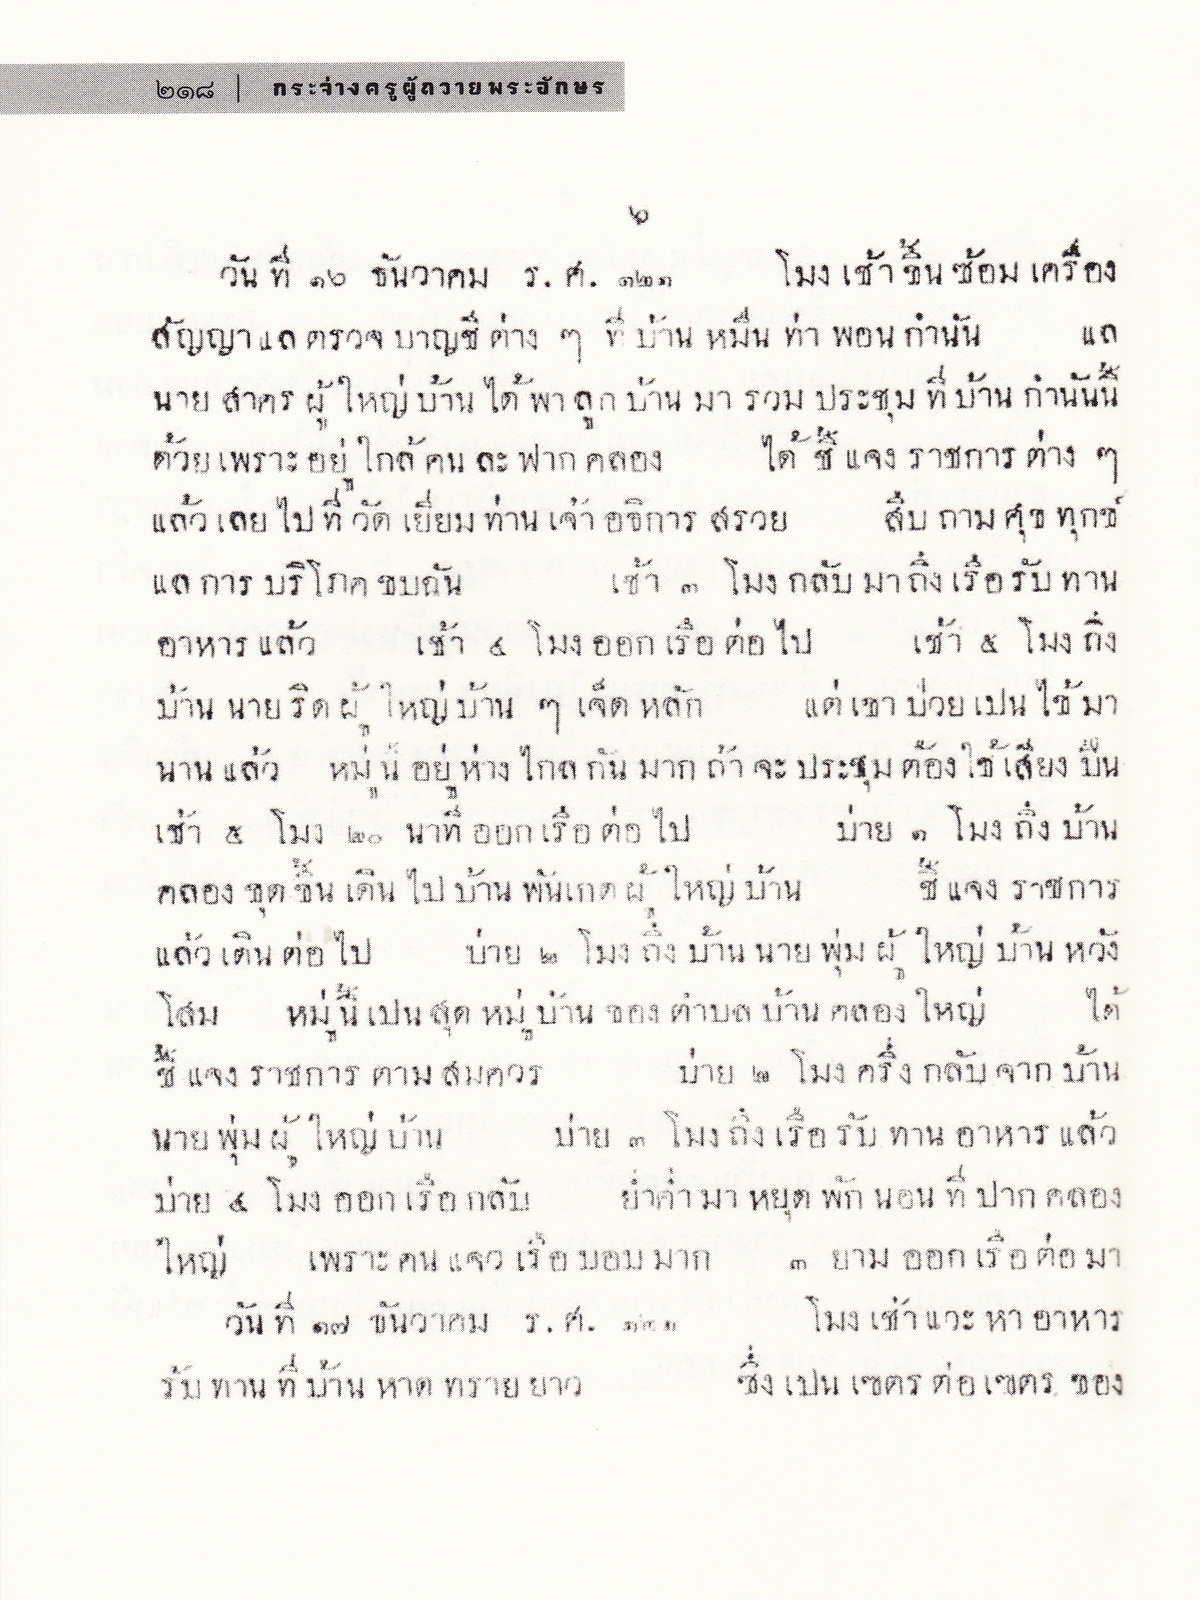 ๒๑๘ | กระจ่างครูผู้ถวายพระอักษร
๖
วันที่ ๑๖ ธันวาคม ร.ศ. ๑๒๑ โมงเช้าขึ้นซ้อมเครื่อง
สัญญาแลตรวจบาญชีต่าง ๆ ที่บ้านหมื่นทำพอนกำนัน แล
นายสาครผู้ใหญ่บ้านได้พาลูกบ้านมารวมประชุมที่บ้านกำนันนี้
ด้วยเพราะอยู่ใกล้คนละฟากคลอง ได้ชี้แจงราชการต่าง ๆ
แล้วเลยไปที่วัดเยี่ยมท่านเจ้าอธิการสรวย สืบถามศุขทุกข์
แลการบริโภคขบฉัน เช้า ๓ โมงกลับมาถึงเรือรับทาน
อาหารแล้ว เช้า ๔ โมงออกเรือต่อไป เช้า ๕ โมงถึง
บ้านนายริดผู้ใหญ่บ้าน ๆ เจ็ดหลัก แต่เขาป่วยเปนไข้มา
นานแล้ว หมู่นี้อยู่ห่างไกลกันมากถ้าจะประชุมต้องใช้เสียงปืน
เช้า ๕ โมง ๒๐ นาทีออกเรือต่อไป บ่าย ๑ โมงถึงบ้าน
คลองขุดขึ้นเดินไปบ้านพันเกตผู้ใหญ่บ้าน ชี้แจงราชการ
แล้วเดินต่อไป บ่าย ๒ โมงถึงบ้านนายพุ่มผู้ใหญ่บ้านหวัง
โสม หมู่นี้เปนสุดหมู่บ้านของตำบลบ้านคลองใหญ่ ได้
ชี้แจงราชการตามสมควร บ่าย ๒ โมงครึ่งกลับจากบ้าน
นายพุ่มผู้ใหญ่บ้าน บ่าย ๓ โมงถึงเรือรับทานอาหารแล้ว
บ่าย ๔ โมงออกเรือกลับ ย่ำค่ำมาหยุดพักนอนที่ปากคลอง
ใหญ่ เพราะคนแจวเรือบอบมาก ๓ ยามออกเรือต่อมา
วันที่ ๑๗ ธันวาคม ร.ศ. ๑๒๑ โมงเช้าแวะหาอาหาร
รับทานที่บ้านหาดทรายยาว ซึ่งเปนเขตรต่อเขตรของ